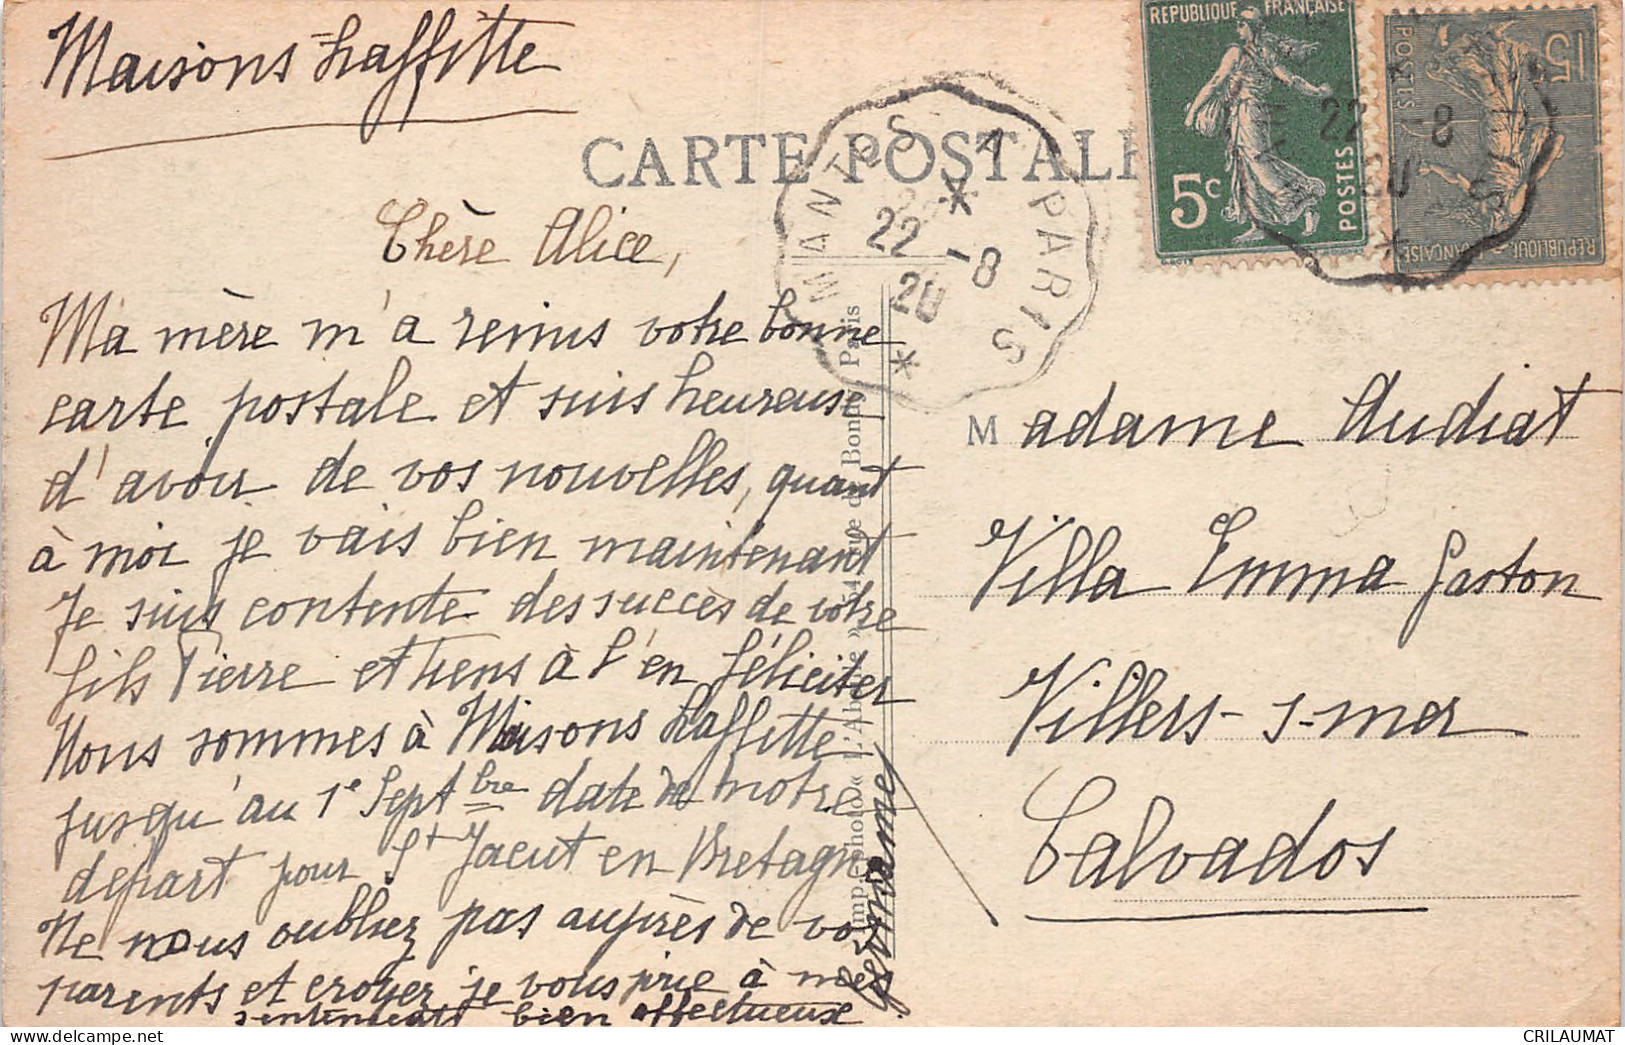 Maisons-Laffitte
CARTE POSTALE
REPUBLIQUE FRANÇAISE
5c
POSTES
15c
POSTES
REPUBLIQUE FRANÇAISE
MANTES A PARIS
22 -8
20
22 -8
20
Chère Alice,
Ma mère m'a remis votre bonne
carte postale et suis heureuse
d'avoir de vos nouvelles, quant
à moi je vais bien maintenant
Je suis contente des succès de votre
fils Pierre et tiens à l'en féliciter
Nous sommes à Maisons Laffitte
jusqu'au 1e Septbre date de notre
depart pour St Jacut en Bretagne
Ne nous oubliez pas auprès de vos
parents et croyez je vous prie à mes
sentiments bien affectueux
Germaine
Madame Audiat
Villa Emma Gaston
Villers-s-mer
Calvados
CRILAUMAT